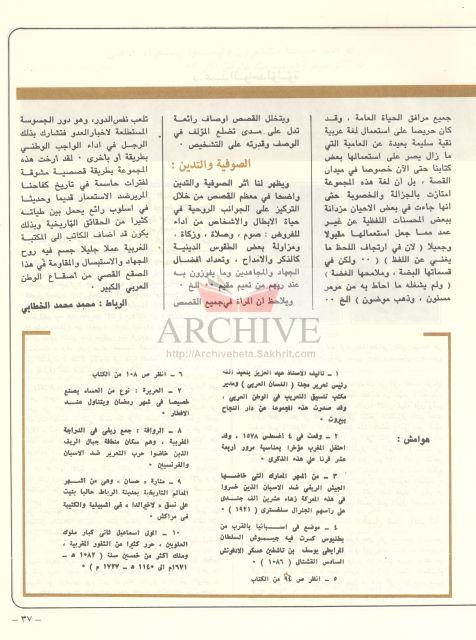 جميع مرافق الحياة العامة ، وقد
كان حريصا على استعمال لغة عربية
نقية سليمة بعيدة عن العامية التي
ما زال يصر على استعمالها بعض
كتابنا حتى الآن خصوصا في ميدان
القصة ، بل ان لغة هذه المجموعة
امتازت بالجزالة والخصوبة حتى
انها جاءت في بعض الاحيان مزدانة
ببعض المحسنات اللفظية عن غير
عمد مما جعل استعمالها مقبولا
وجميلا ( لان في ارتجاف اللحظ ما
يغني عن اللفظ ) (٠٠ ولكن في
قسماتها البضة ، وملامحها الغضة )
( ولم يشغله ما احاط به من مرمر
مسنون ، وذهب موضون ) الخ ٠٠
ويتخلل القصص اوصاف رائعة
تدل على مدى تضلع المؤلف في
الوصف وقدرته على التشخيص ٠
الصوفية والتدين :
ويظهر لنا أثر الصوفية والتدين
واضحا في معظم القصص من خلال
التركيز على الجوانب الروحية في
حياة الابطال والاشخاص من اداء
للفروض : صوم ، وصلاة ، وزكاة ،
ومزاولة بعض الطقوس الدينية
كالذكر والامداح ، وتعداد افضال
الجهاد والمجاهدين وما يفوزون به
عند ربهم من نعيم مقيم ٠٠ الخ ٠
ويلاحظ ان المرأة في جميع القصص
تلعب نفس الدور، وهو دور الجسوسة
المستطلعة لاخبار العدو فتشارك بذلك
الرجل في اداء الواجب الوطني
بطريقة أو باخرى ٠ لقد ارخت هذه
المجموعة بطريقة قصصية مشوقة
لفترات حاسمة في تاريخ كفاحنا
المرير ضد الاستعمار قديما وحديثا
في اسلوب رائع يحمل بين طياته
كثيرا من الحقائق التاريخية وبذلك
يكون قد اضاف الكاتب الى المكتبة
العربية عملا جليلا جسم فيه روح
الجهاد والاستبسال والمقاومة في هذا
الصقع القصي من أصقاع الوطن
العربي الكبير ٠
الرباط : محمد محمد الخطابي
ARCHIVE
http://Archivebeta.Sakhrit.com
هوامش :
١ – تأليف الاستاذ عبد العزيز بنعبد الله
رئيس تحرير مجلة ( اللسان العربي ) ومدير
مكتب تنسيق التعريب في الوطن العربي ،
وقد صدرت هذه المجموعة عن دار النجاح
بيروت ٠
٢ – وقعت في ٤ اغسطس ١٥٧٨ ، وقد
احتفل المغرب مؤخرا بمناسبة مرور أربعة
عشر قرنا على هذه الذكرى ٠
٣ – من اشهر المعارك التي خاضها
الجيش الريفي ضد الاسبان الذين خسروا
في هذه المعركة زهاء عشرين الف جندي
على راسهم الجنرال سلفستري ( ١٩٢١ ) ٠
٤ – موضع في اسبانيا بالقرب من
بطليوس كسرت فيه جيوش السلطان
المرابطي يوسف بن تاشفين عسكر الاذفونش
السادس القشتالي ( ١٠٨٦ ) ٠
٥ – انظر ص ٩٤ من الكتاب
٦ – انظر ص ١٠٨ من الكتاب
٧ – الحريرة : نوع من الحساء يصنع
خصيصا في شهر رمضان ويتناول عند
الافطار ٠
٨ – الروافة : جمع ريفي في الدراجة
المغربية ، وهم سكان منطقة جبال الريف
الذين خاضوا حرب التحرير ضد الاسبان
والفرنسيين ٠
٩ – منارة « حسان » وهي من اشهر
المعالم التاريخية بمدينة الرباط حاليا بنيت
على نسق « لاخيرالدا » في اشبيلية والكتبية
في مراكش ٠
١٠ – المول اسماعيل ثاني كبار ملوك
العلويين ، حرر كثيرا من الثغور المغربية ،
وملك اكثر من خمسين سنة ( ١٠٨٢ هـ –
١٦٧١م الى ١١٤٠ هـ – ١٧٢٧ م ) ٠
– ٣٧ –